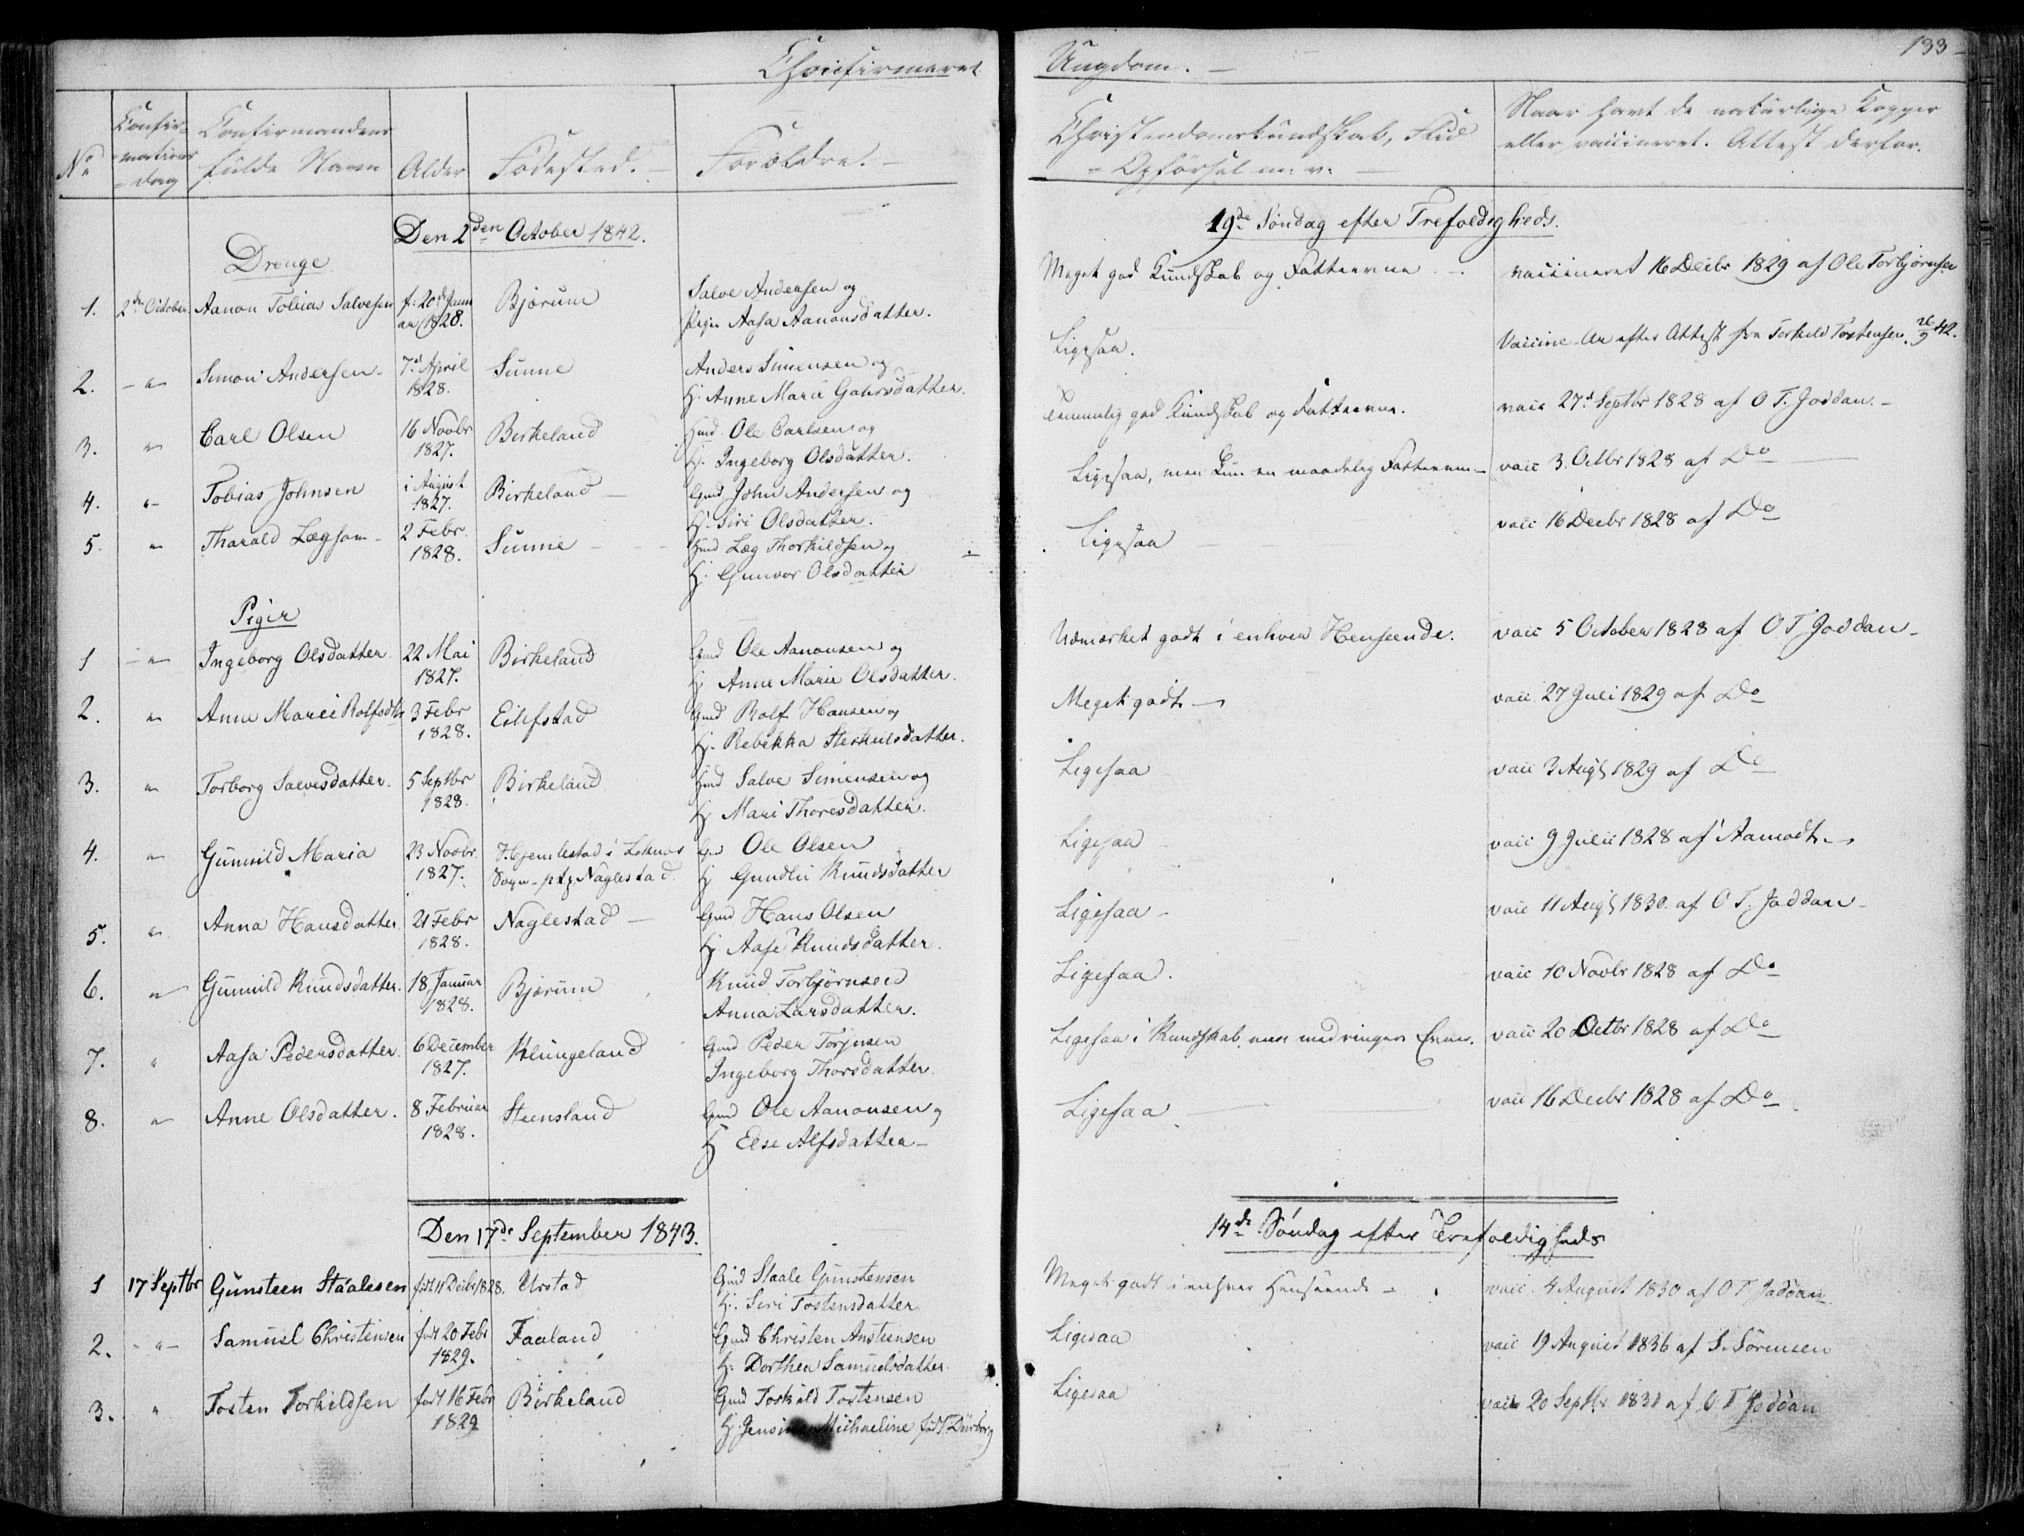 Confirmeret Ungdom. 133
No
Confirmations dag
Confirmandens fulde Navn
Alder
Fødested.
Forældre.
Christendomskundskab, Flid
Opførsel m: v:
Naar havt de naturlige Kopper
eller vaccineret. Attest derfor.
Den 2den October 1842.
19de Søndag efter Trefoldigheds.
Drenge
1. 2de October Aanon Tobias Salvesen f. 20de Januar 1828. Bjørum Salve Andersen og
Pige Aasa Aanonsdatter.
Meget god Kundskab og Fatteevne vaccineret 16 Decbr 1829 af Ole Torbjørnsen
2. -"- Simon Andersen 7d April 1828. Sunne Anders Simensen og
H. Anne Marie
Ligesaa. Vaccine Ar efter Attest fra Torkild Tostensen. 42.
3. " Carl Olsen 16 Novbr 1827. Birkeland Gmd. Ole Carlsen og
H. Ingeborg Olsdatter.
Temmelig god Kundskab og Fatteevne. vacc 27d Septbr 1828 af O T. Joddan.
4. " Tobias Johnsen i August 1827. Birkeland Gmd John Andersen og
H. Siri Olsdatter.
Ligesaa, men kun en maadelig Fatteevne vacc 3. Octbr 1828 af Do
5. " Tharald Lægsøn 2 Febr. 1828. Sunne Gmd Læg Thorkildsen og
H. Gunvor Olsdatter
Ligesaa vacc 16 Decbr 1828 af Do
Piger
1 -"- Ingeborg Olsdatter. 22 Mai 1827. Birkeland Gmd Ole Aanonsen og
H Anne Marie Olsdatter.
Udmærket godt i enhver Henseende. vacc 5 October 1828 af O T Joddan
2. " Anne Marie Rolfsdtr 3 Febr 1828. Eilefstad Gmd Rolf Hansen og
H. Rebekka
Meget godt vacc 27 Juli 1829 af Do
3. " Torborg Salvesdatter. 5 Septbr 1828. Birkeland Gmd Salve Simensen og
H Mari Thoresdatter.
Ligesaa vacc 3 Augt 1829 af Do
4. " Gunnild Maria 23 Novbr. 1827. Hjemlestad i
Sogn Naglestad.
Gmd Ole Olsen
H Gundbie Knudsdatter
Ligesaa vacc 9 Julii 1828 af Aamodt
5. " Anna Hansdatter 21 Febr 1828. Naglestad Gmd Hans Olsen
H Aase Knudsdatter.
Ligesaa vacc 11 Augt 1830. af O T. Joddan
6. " Gunnild Knudsdatter. 18 Januar 1828. Bjørum Knud Torbjørnsen
Anna Larsdatter.
Ligesaa. vacc 10 Novbr 1828 af Do
7. " Aasa Pedersdatter. 6 December 1827. Klungeland Gmd Peder Torjusen
Ingeborg Thorsdatter
Ligesaa i Kundskab, men med ringere Evner. vacc 20 Octbr 1828 af Do
8. " Anne Olsdatter. 8 Februar 1828. Steensland Gmd Ole Aanonsen og
H Else Alfsdatter
Ligesaa vacc 16 Decbr 1828 af Do
Den 17de September 1843.
14de Søndag efter Trefoldigheds
1 17 Septbr Gunsteen Staalesen født 11 Decbr 1828. Urstad Gmd Staale Gunstensen
H. Siri Tostensdatter
Meget godt i enhver Henseende vacc 4 August 1830 af O T Joddan
2. -"- Samuel Christensen født 20 Febr 1829. Faaland Gmd Christen Anstensen
H. Dorthea Samuelsdatter.
Ligesaa vacc 19 August 1836 af S. Sørensen
3. " Tosten Torkildsen født 16 Febr 1829 Birkeland Gmd Torkild Tostensen
H. Michaeline født
Ligesaa vacc 20 Septbr 1831 af O T Joddan